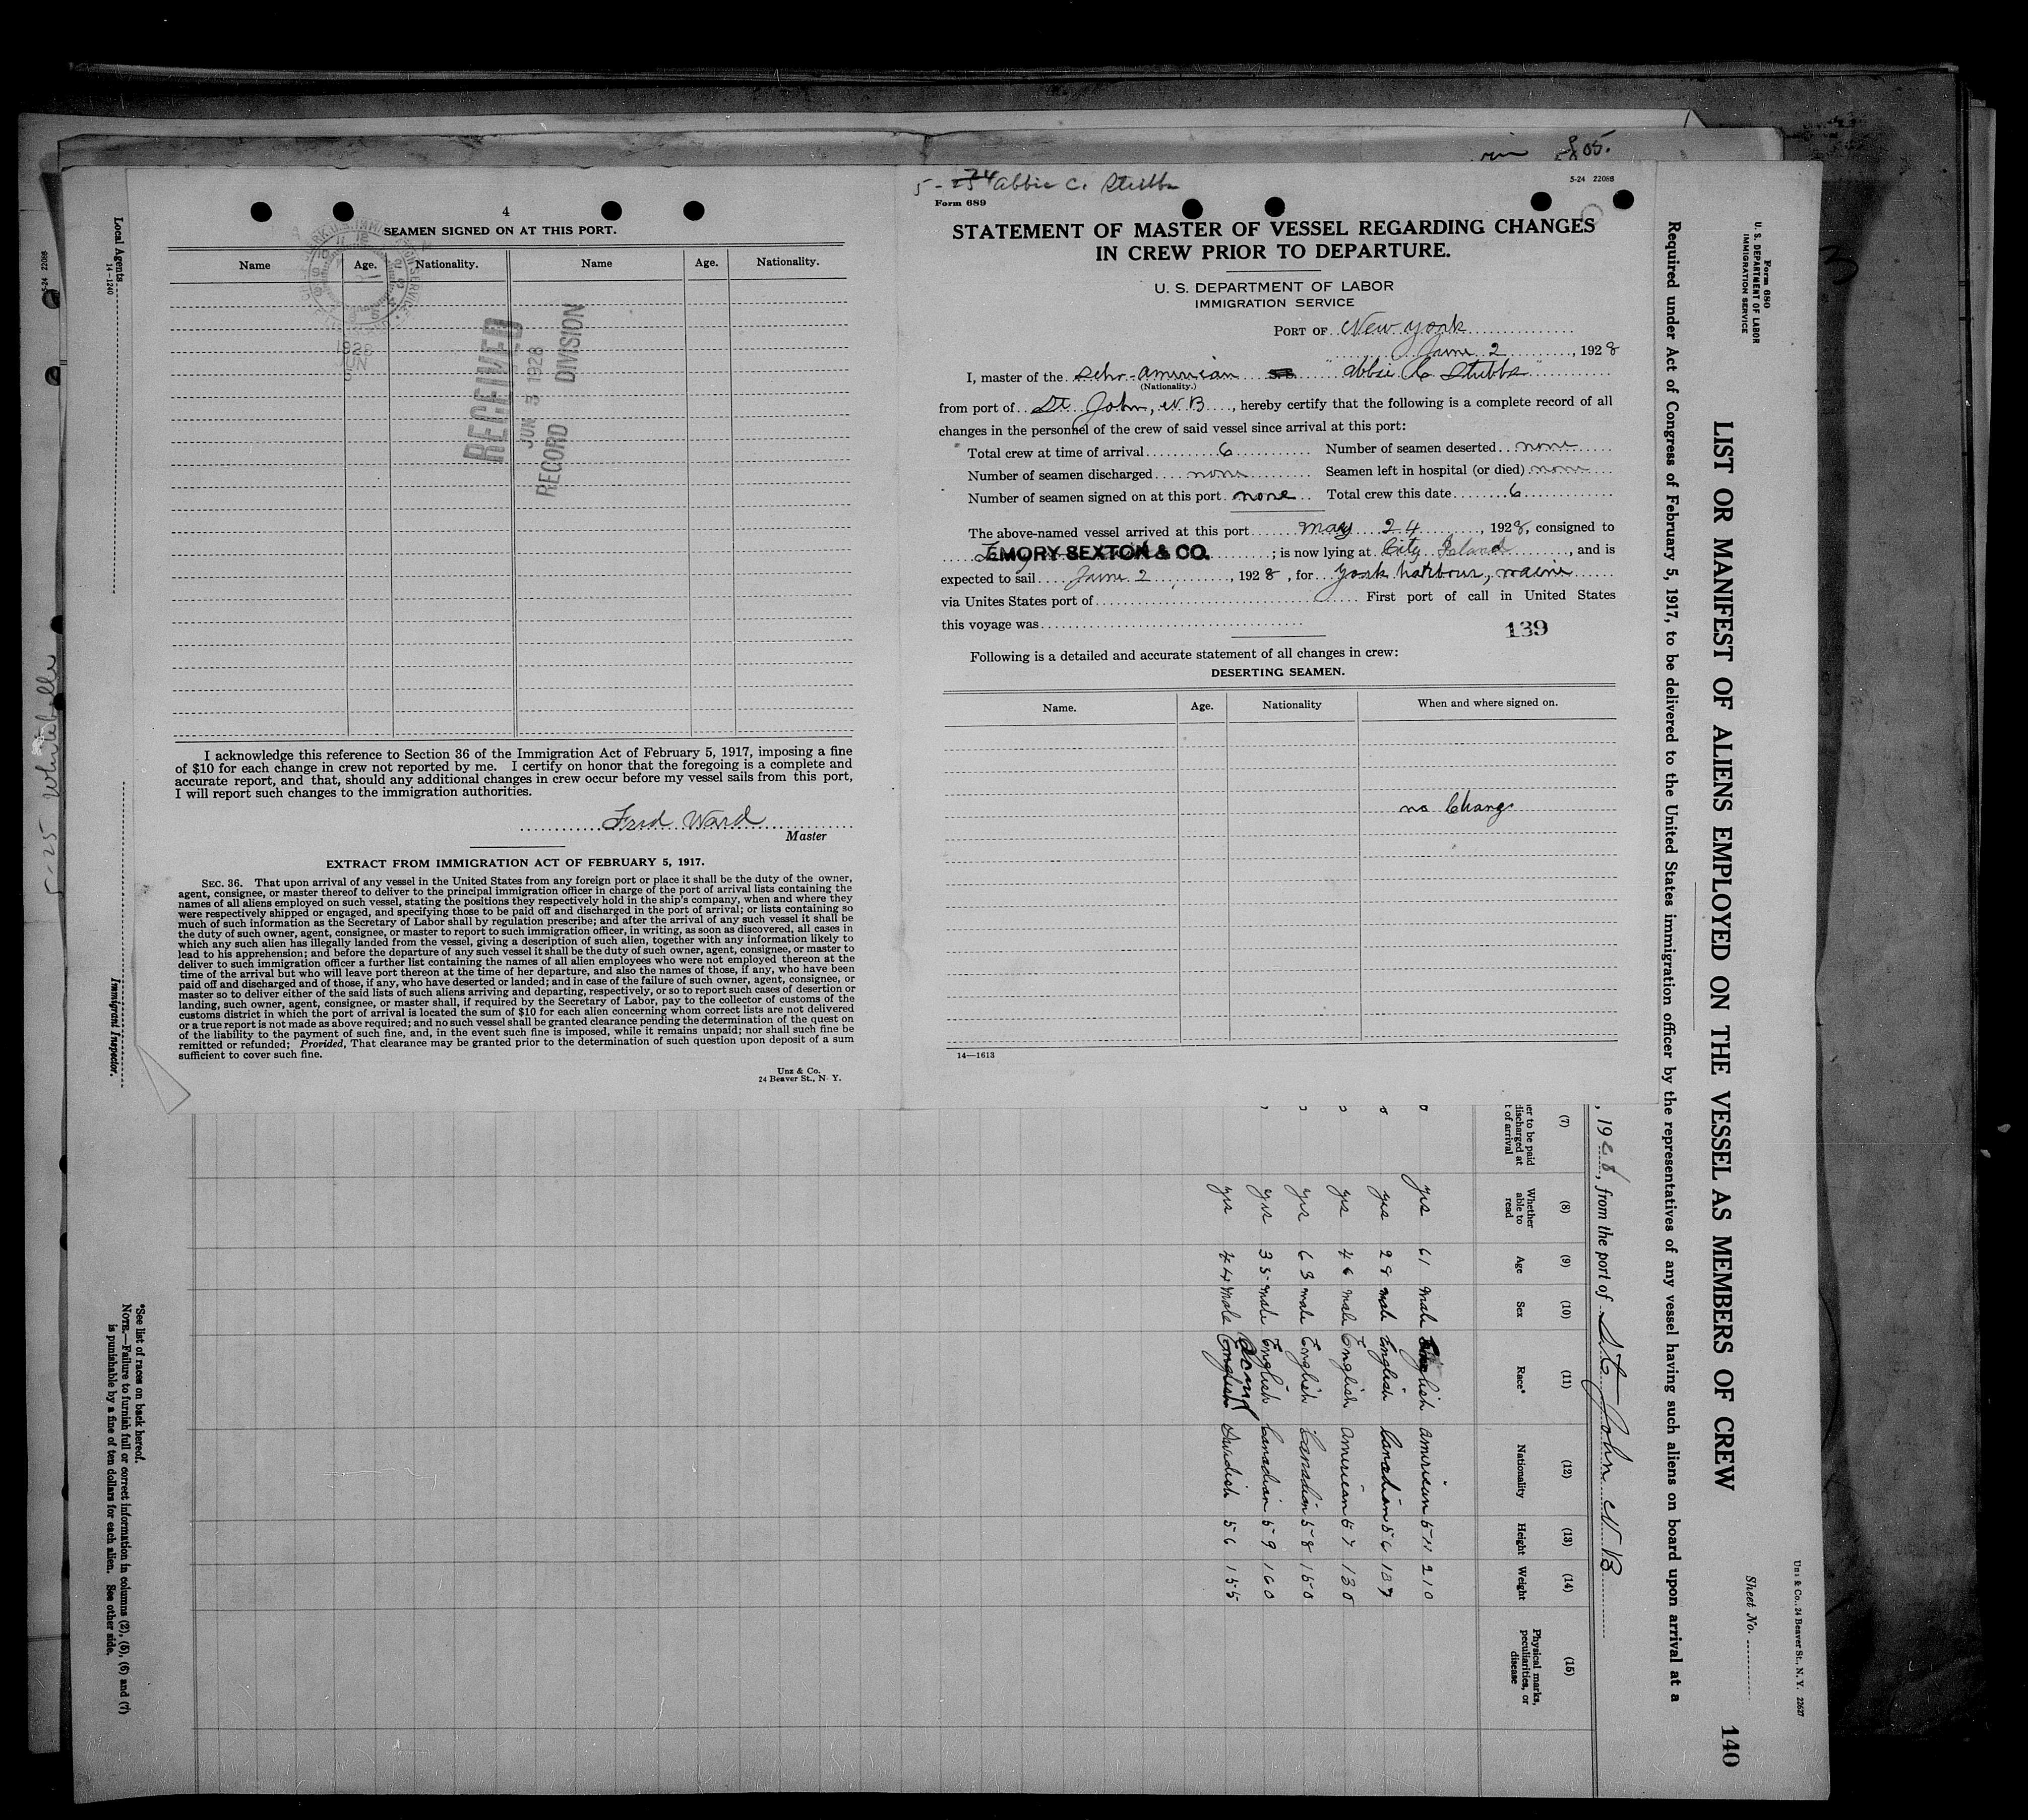 5-24 Abbie C. Stubbs
5-24 22086
Form 689
STATEMENT OF MASTER OF VESSEL REGARDING CHANGES
IN CREW PRIOR TO DEPARTURE.
U. S. DEPARTMENT OF LABOR
IMMIGRATION SERVICE
PORT OF New York
June 2, 1928
I, master of the Schr - American "Abbie C Stubbs"
(Nationality.)
from port of St John, N.B., hereby certify that the following is a complete record of all
changes in the personnel of the crew of said vessel since arrival at this port:
Total crew at time of arrival 6 Number of seamen deserted none
Number of seamen discharged none Seamen left in hospital (or died) none
Number of seamen signed on at this port none Total crew this date 6
The above-named vessel arrived at this port May 24, 1928, consigned to
EMORY SEXTON & CO. ; is now lying at City Island, and is
expected to sail June 2, 1928, for York harbour, Maine
via Unites States port of First port of call in United States
this voyage was
139
Following is a detailed and accurate statement of all changes in crew:
DESERTING SEAMEN.
Name. Age. Nationality When and where signed on.
no Change
14—1613
4
SEAMEN SIGNED ON AT THIS PORT.
Name Age. Nationality. Name Age. Nationality.
1928
JUN
RECEIVED
JUN 5 1928
RECORD DIVISION
I acknowledge this reference to Section 36 of the Immigration Act of February 5, 1917, imposing a fine
of $10 for each change in crew not reported by me. I certify on honor that the foregoing is a complete and
accurate report, and that, should any additional changes in crew occur before my vessel sails from this port,
I will report such changes to the immigration authorities.
Fred Ward
Master
EXTRACT FROM IMMIGRATION ACT OF FEBRUARY 5, 1917.
SEC. 36. That upon arrival of any vessel in the United States from any foreign port or place it shall be the duty of the owner,
agent, consignee, or master thereof to deliver to the principal immigration officer in charge of the port of arrival lists containing the
names of all aliens employed on such vessel, stating the positions they respectively hold in the ship's company, when and where they
were respectively shipped or engaged, and specifying those to be paid off and discharged in the port of arrival; or lists containing so
much of such information as the Secretary of Labor shall by regulation prescribe; and after the arrival of any such vessel it shall be
the duty of such owner, agent, consignee, or master to report to such immigration officer, in writing, as soon as discovered, all cases in
which any such alien has illegally landed from the vessel, giving a description of such alien, together with any information likely to
lead to his apprehension; and before the departure of any such vessel it shall be the duty of such owner, agent, consignee, or master to
deliver to such immigration officer a further list containing the names of all alien employees who were not employed thereon at the
time of the arrival but who will leave port thereon at the time of her departure, and also the names of those, if any, who have been
paid off and discharged and of those, if any, who have deserted or landed; and in case of the failure of such owner, agent, consignee, or
master so to deliver either of the said lists of such aliens arriving and departing, respectively, or so to report such cases of desertion or
landing, such owner, agent, consignee, or master shall, if required by the Secretary of Labor, pay to the collector of customs of the
customs district in which the port of arrival is located the sum of $10 for each alien concerning whom correct lists are not delivered
or a true report is not made as above required; and no such vessel shall be granted clearance pending the determination of the quest on
of the liability to the payment of such fine, and, in the event such fine is imposed, while it remains unpaid; nor shall such fine be
remitted or refunded; Provided, That clearance may be granted prior to the determination of such question upon deposit of a sum
sufficient to cover such fine.
Unz & Co.
24 Beaver St., N. Y.
Unz & Co., 24 Beaver St., N. Y. 22627
Form 680
U. S. DEPARTMENT OF LABOR
IMMIGRATION SERVICE
Sheet No.
140
LIST OR MANIFEST OF ALIENS EMPLOYED ON THE VESSEL AS MEMBERS OF CREW
Required under Act of Congress of February 5, 1917, to be delivered to the United States immigration officer by the representatives of any vessel having such aliens on board upon arrival at a
, 1928, from the port of St John N B
(7) (8) (9) (10) (11) (12) (13) (14) (15)
er to be paid
discharged at
t of arrival
Whether
able to
read
Age
Sex
Race*
Nationality
Height
Weight
Physical marks,
peculiarities, or
disease
yes 61 male English American 5 11 210
yes 28 male English Canadian 5 6 137
yes 46 male English American 5 7 130
yes 63 male English Canadian 5 8 150
yes 35 male English Canadian 5 9 160
Scand
yes 44 male English Swedish 5 6 155
*See list of races on back hereof.
NOTE.—Failure to furnish full or correct information in columns (2), (5), (6) and (7)
is punishable by a fine of ten dollars for each alien. See other side.
Local Agents
14—1240
Immigrant Inspector.
5-25 Whitebelle
5-24 22086